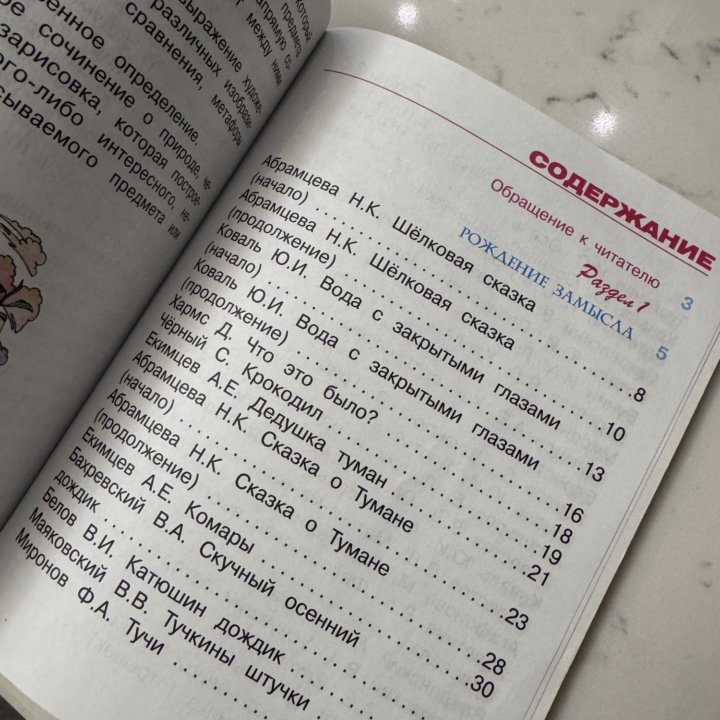 который
предмета
напрямую со-
между ними
выражение художе-
различных изобрази-
сравнения, метафоры
енное определение.
ое сочинение о природе, не-
зарисовка, которая построе-
ого-либо интересного, не-
сываемого предмета или
СОДЕРЖАНИЕ
Обращение к читателю 3
Раздел 1
РОЖДЕНИЕ ЗАМЫСЛА 5
Абрамцева Н.К. Шёлковая сказка
(начало) 8
Абрамцева Н.К. Шёлковая сказка
(продолжение) 10
Коваль Ю.И. Вода с закрытыми глазами
(начало) 13
Коваль Ю.И. Вода с закрытыми глазами
(продолжение) 16
Хармс Д. Что это было? 18
Чёрный С. Крокодил 19
Екимцев А.Е. Дедушка туман 21
Абрамцева Н.К. Сказка о Тумане
(начало) 23
Абрамцева Н.К. Сказка о Тумане
(продолжение) 28
Екимцев А.Е. Комары 30
Бахревский В.А. Скучный осенний
дождик
Белов В.И. Катюшин дождик
Маяковский В.В. Тучкины штучки
Миронов Ф.А. Тучи